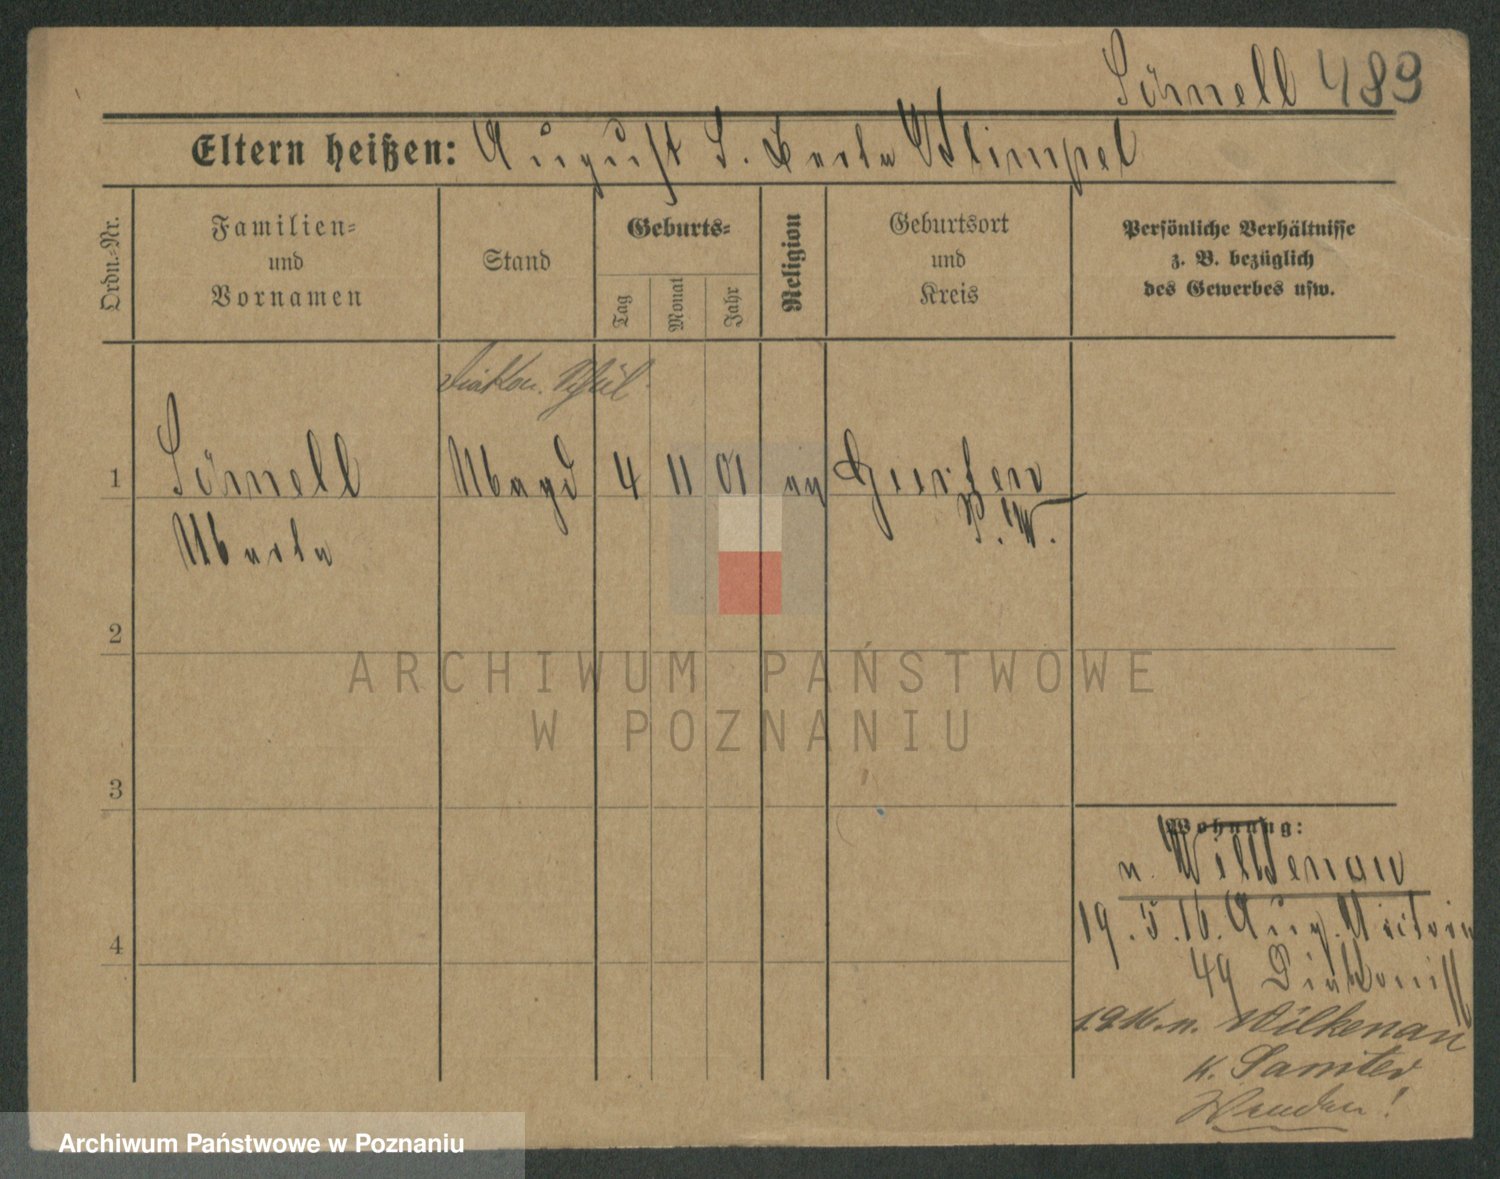 Sörnell 489
Eltern heißen: August S. Berta Stimpel
Ordn.-Nr.
Familien-
und
Vornamen
Stand
Geburts-
Tag
Monat
Jahr
Religion
Geburtsort
und
Kreis
Persönliche Verhältnisse
z. B. bezüglich
des Gewerbes usw.
Diakon. Schül.
1 Sörnell Magd 4 11 01
Marta
2
3
4
ARCHIWUM PAŃSTWOWE
W POZNANIU
Wohnung:
n. Wilkenau
19.5.16. Aug. Victoria
49 Diakoniss
1.9.16. n. Wilkenau
K. Samter
Wenden!
Archiwum Państwowe w Poznaniu